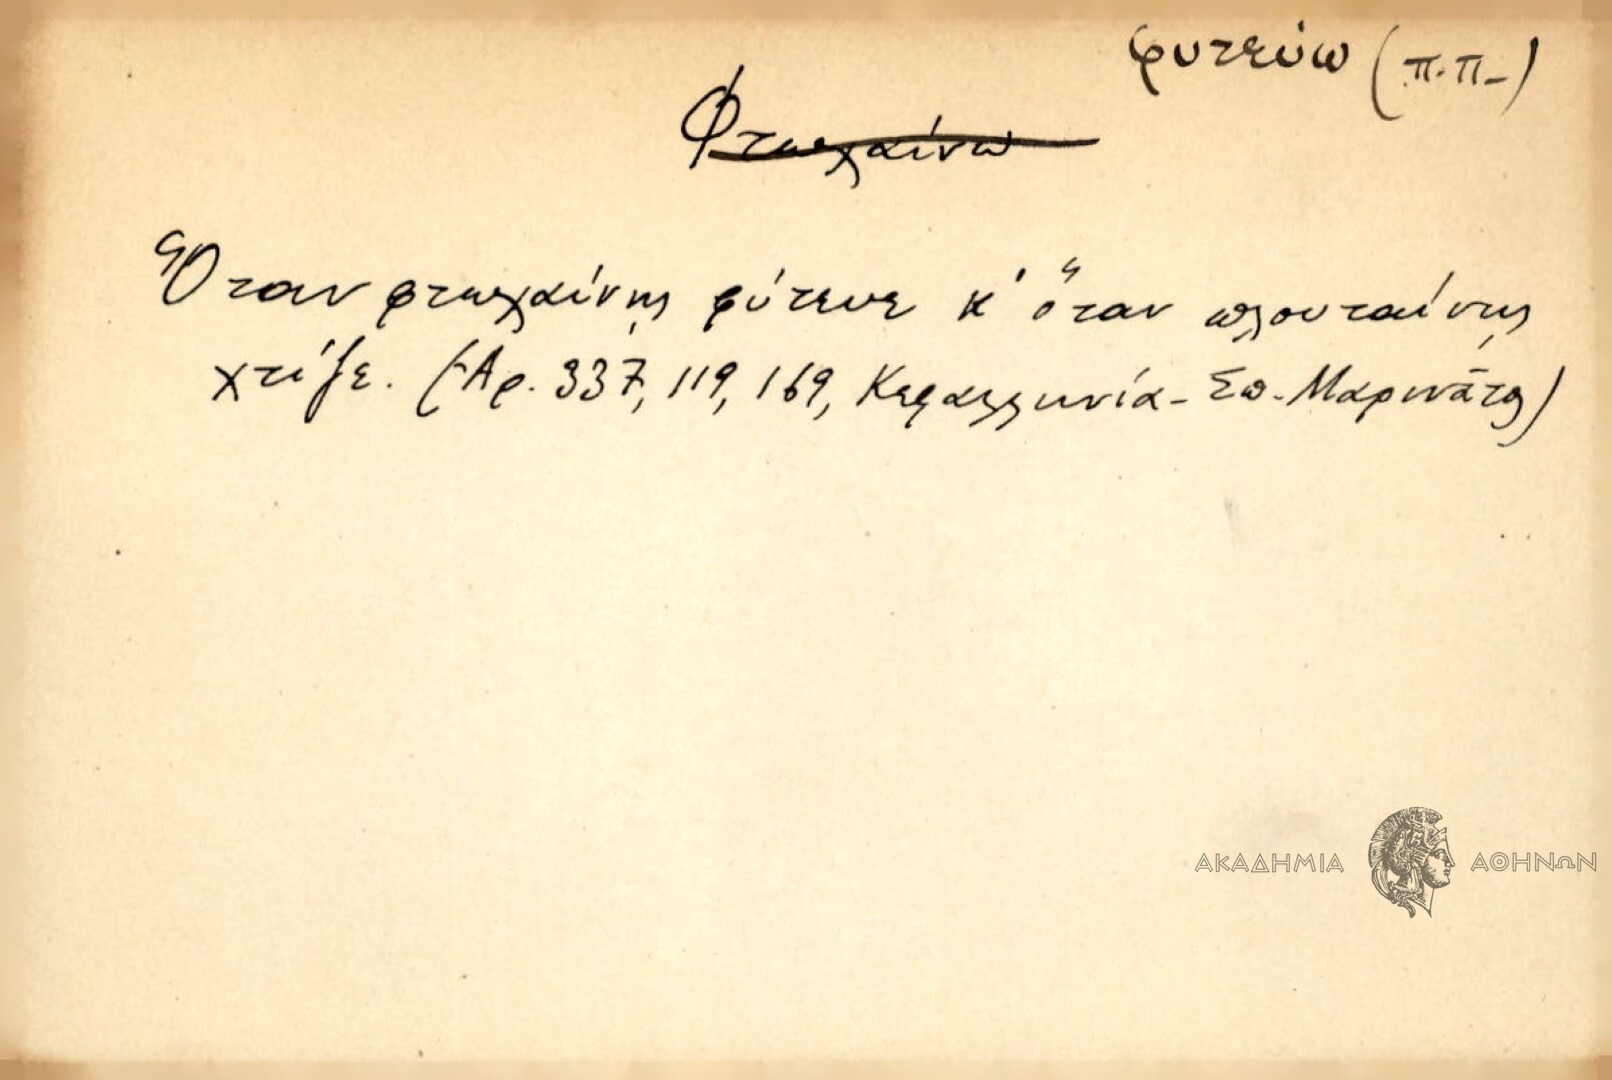 φυτεύω (π.π.)
Φτωχαίνω
Ὅταν φτωχαίνῃς φύτευε κ' ὅταν πλουταίνῃς
χτίζε. (Ἀρ. 337, 119, 169, Κεφαλληνία - Σπ. Μαρινᾶτος)
ΑΚΑΔΗΜΙΑ ΑΘΗΝΩΝ